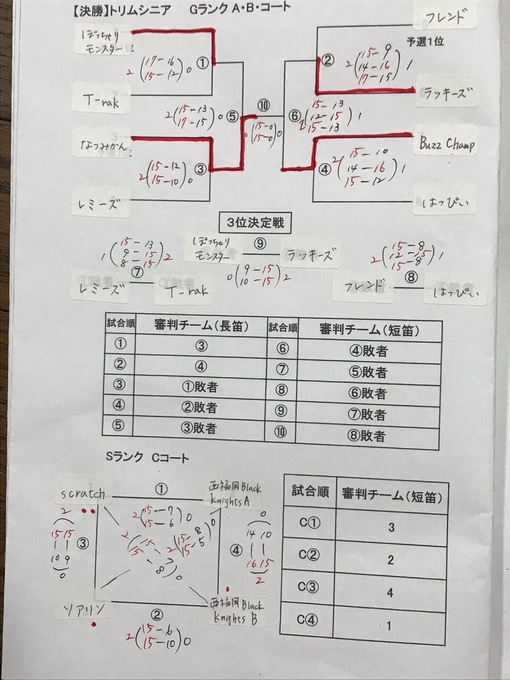 【決勝】トリムシニア　Gランク A・B・コート
ぽっちゃり
モンスター
フレンド
予選1位
① 2(17-16 15-12)0
② 2(15-9 14-16 17-15)1
T-rak
ラッキーズ
⑤ 2(15-13 17-15)0
⑩
(15-0 15-0)0
⑥ 2(15-13 12-15 15-13)1
なつみかん
Buzz Champ
③ 2(15-12 15-10)0
④ 2(15-10 14-16 15-12)1
レミーズ
はっぴい
3位決定戦
1(15-13 9-15 8-15)2
⑦
レミーズ
T-rak
ぽっちゃり
モンスター
⑨
ラッキーズ
0(9-15 10-15)2
2(15-8 12-15 15-8)1
⑧
フレンド
はっぴい
試合順 審判チーム(長笛) 試合順 審判チーム(短笛)
① ③ ⑥ ④敗者
② ④ ⑦ ⑤敗者
③ ①敗者 ⑧ ⑥敗者
④ ②敗者 ⑨ ⑦敗者
⑤ ③敗者 ⑩ ⑧敗者
Sランク Cコート
①
scratch
西福岡Black
Knights A
2(15-7 15-6)0
③ 2(15-10 15-9)0
④ 0(14-16 10-15)2
ソアリン
西福岡Black
Knights B
②
2(15-6 15-10)0
試合順 審判チーム(短笛)
C① 3
C② 2
C③ 4
C④ 1